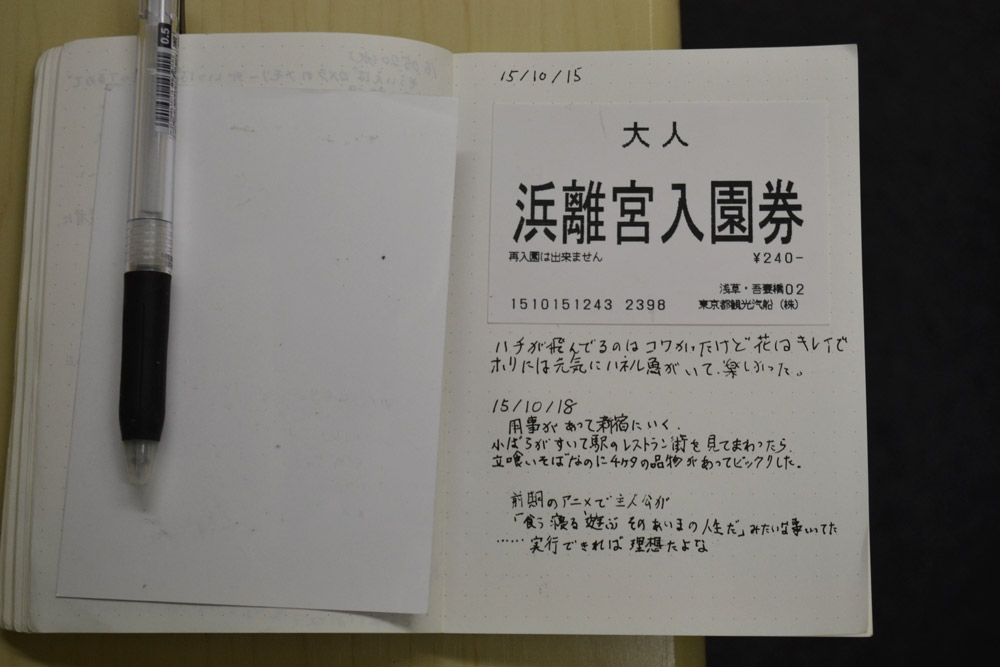 0.5
15/10/15
大人
浜離宮入園券
再入園は出来ません
¥240-
浅草・吾妻橋02
1510151243 2398
東京都観光汽船(株)
ハチが飛んでるのはコワかったけど花はキレイで
ホリには元気にハネル魚がいて、楽しかった。
15/10/18
用事があって新宿にいく.
小ばらがすいて駅のレストラン街を見てまわったら、
立喰いそばなのに4ケタの品物があってビックリした.
前期のアニメで主人公が
「食う寝る遊ぶ そのあいまの人生だ」みたいな事いってた
……実行できれば理想だよな